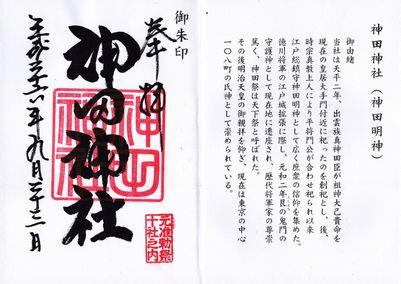 神田神社（神田明神）
御由緒
当社は天平二年、出雲族真神田臣が祖神大己貴命を
現在の皇居大手門付近に祀ったのを創祀とし、後、
時宗真教上人により平将門公が合わせ祀られ以来
江戸総鎮守神田明神として広く庶衆の信仰を集めた。
徳川将軍の江戸城拡張に際し、元和二年艮の鬼門の
守護神として現在地に遷座され、歴代将軍家の尊崇
篤く、神田祭は天下祭と呼ばれた。
その後明治天皇の御親拝を仰ぎ、現在は東京の中心
一〇八町の氏神として崇められている。
御朱印
奉拝
神田神社
平成二十六年九月二十三日
元准勅祭
十社之内